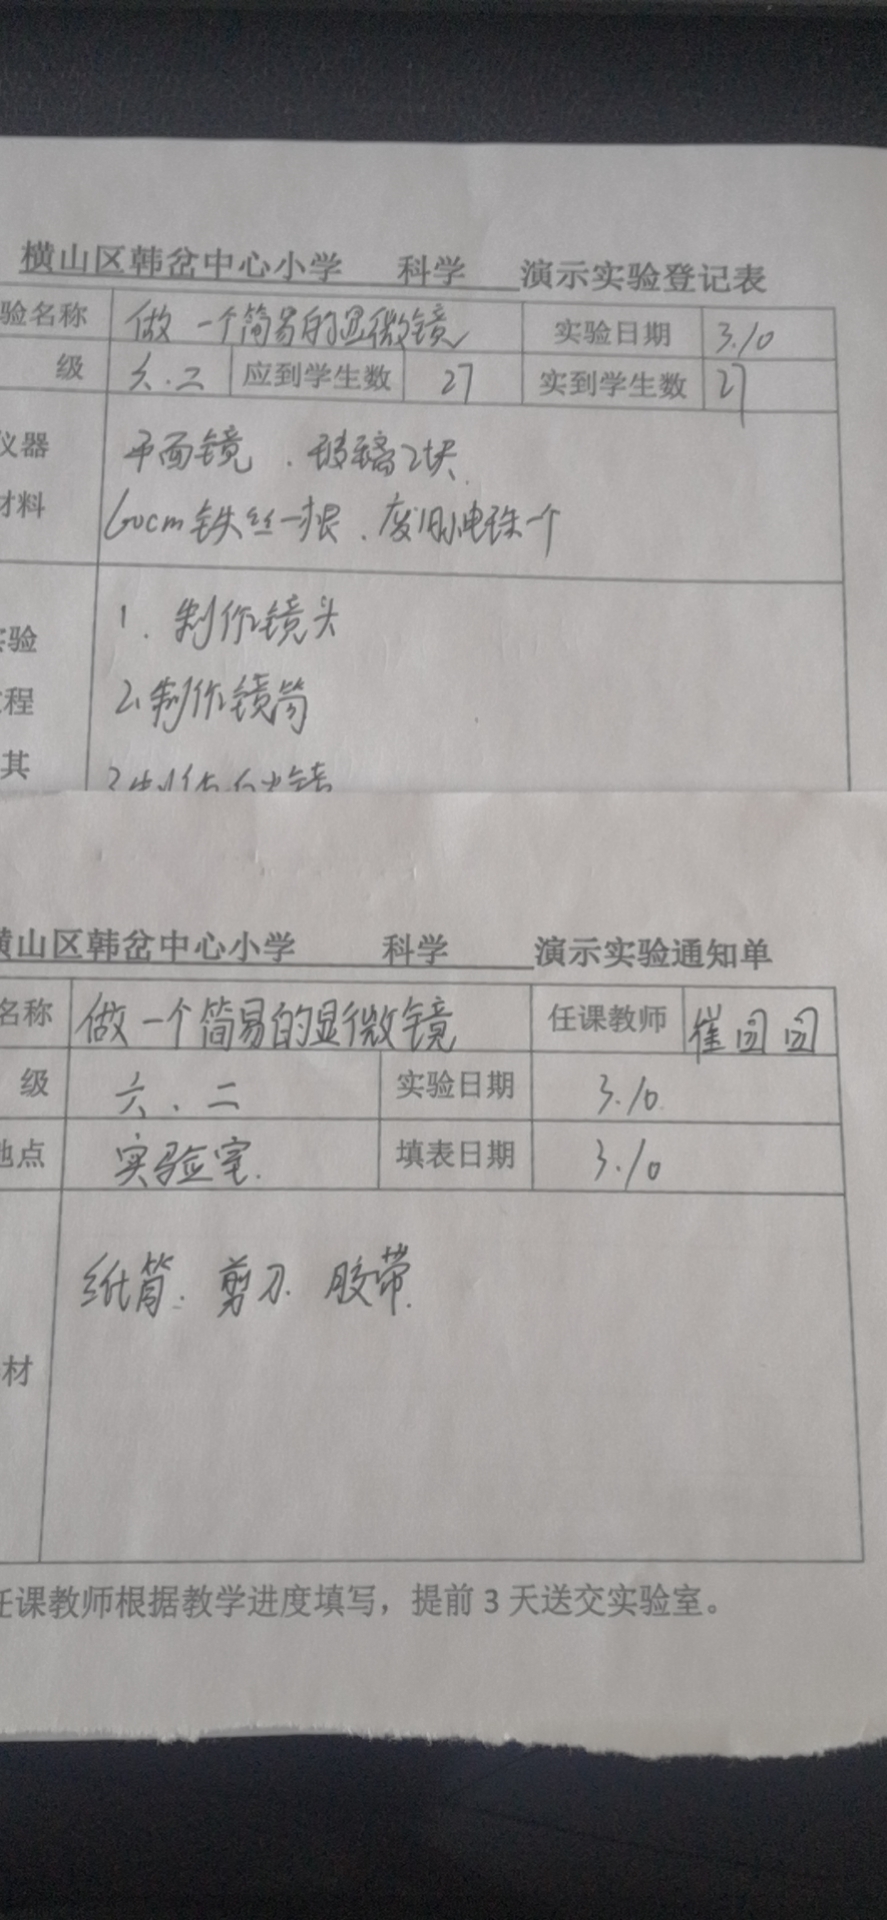 横山区韩岔中心小学 科学 演示实验登记表
验名称 做一个简易的显微镜 实验日期 3.10
级 六.二 应到学生数 27 实到学生数 27
仪器 平面镜.玻璃2块.
材料 60cm铁丝一根.废旧小电珠一个
实验 1.制作镜头
过程 2.制作镜筒
其 3.制作反光镜
横山区韩岔中心小学 科学 演示实验通知单
名称 做一个简易的显微镜 任课教师 崔园园
级 六.二 实验日期 3.10
地点 实验室. 填表日期 3.10
纸筒.剪刀.胶带.
材
任课教师根据教学进度填写，提前3天送交实验室。